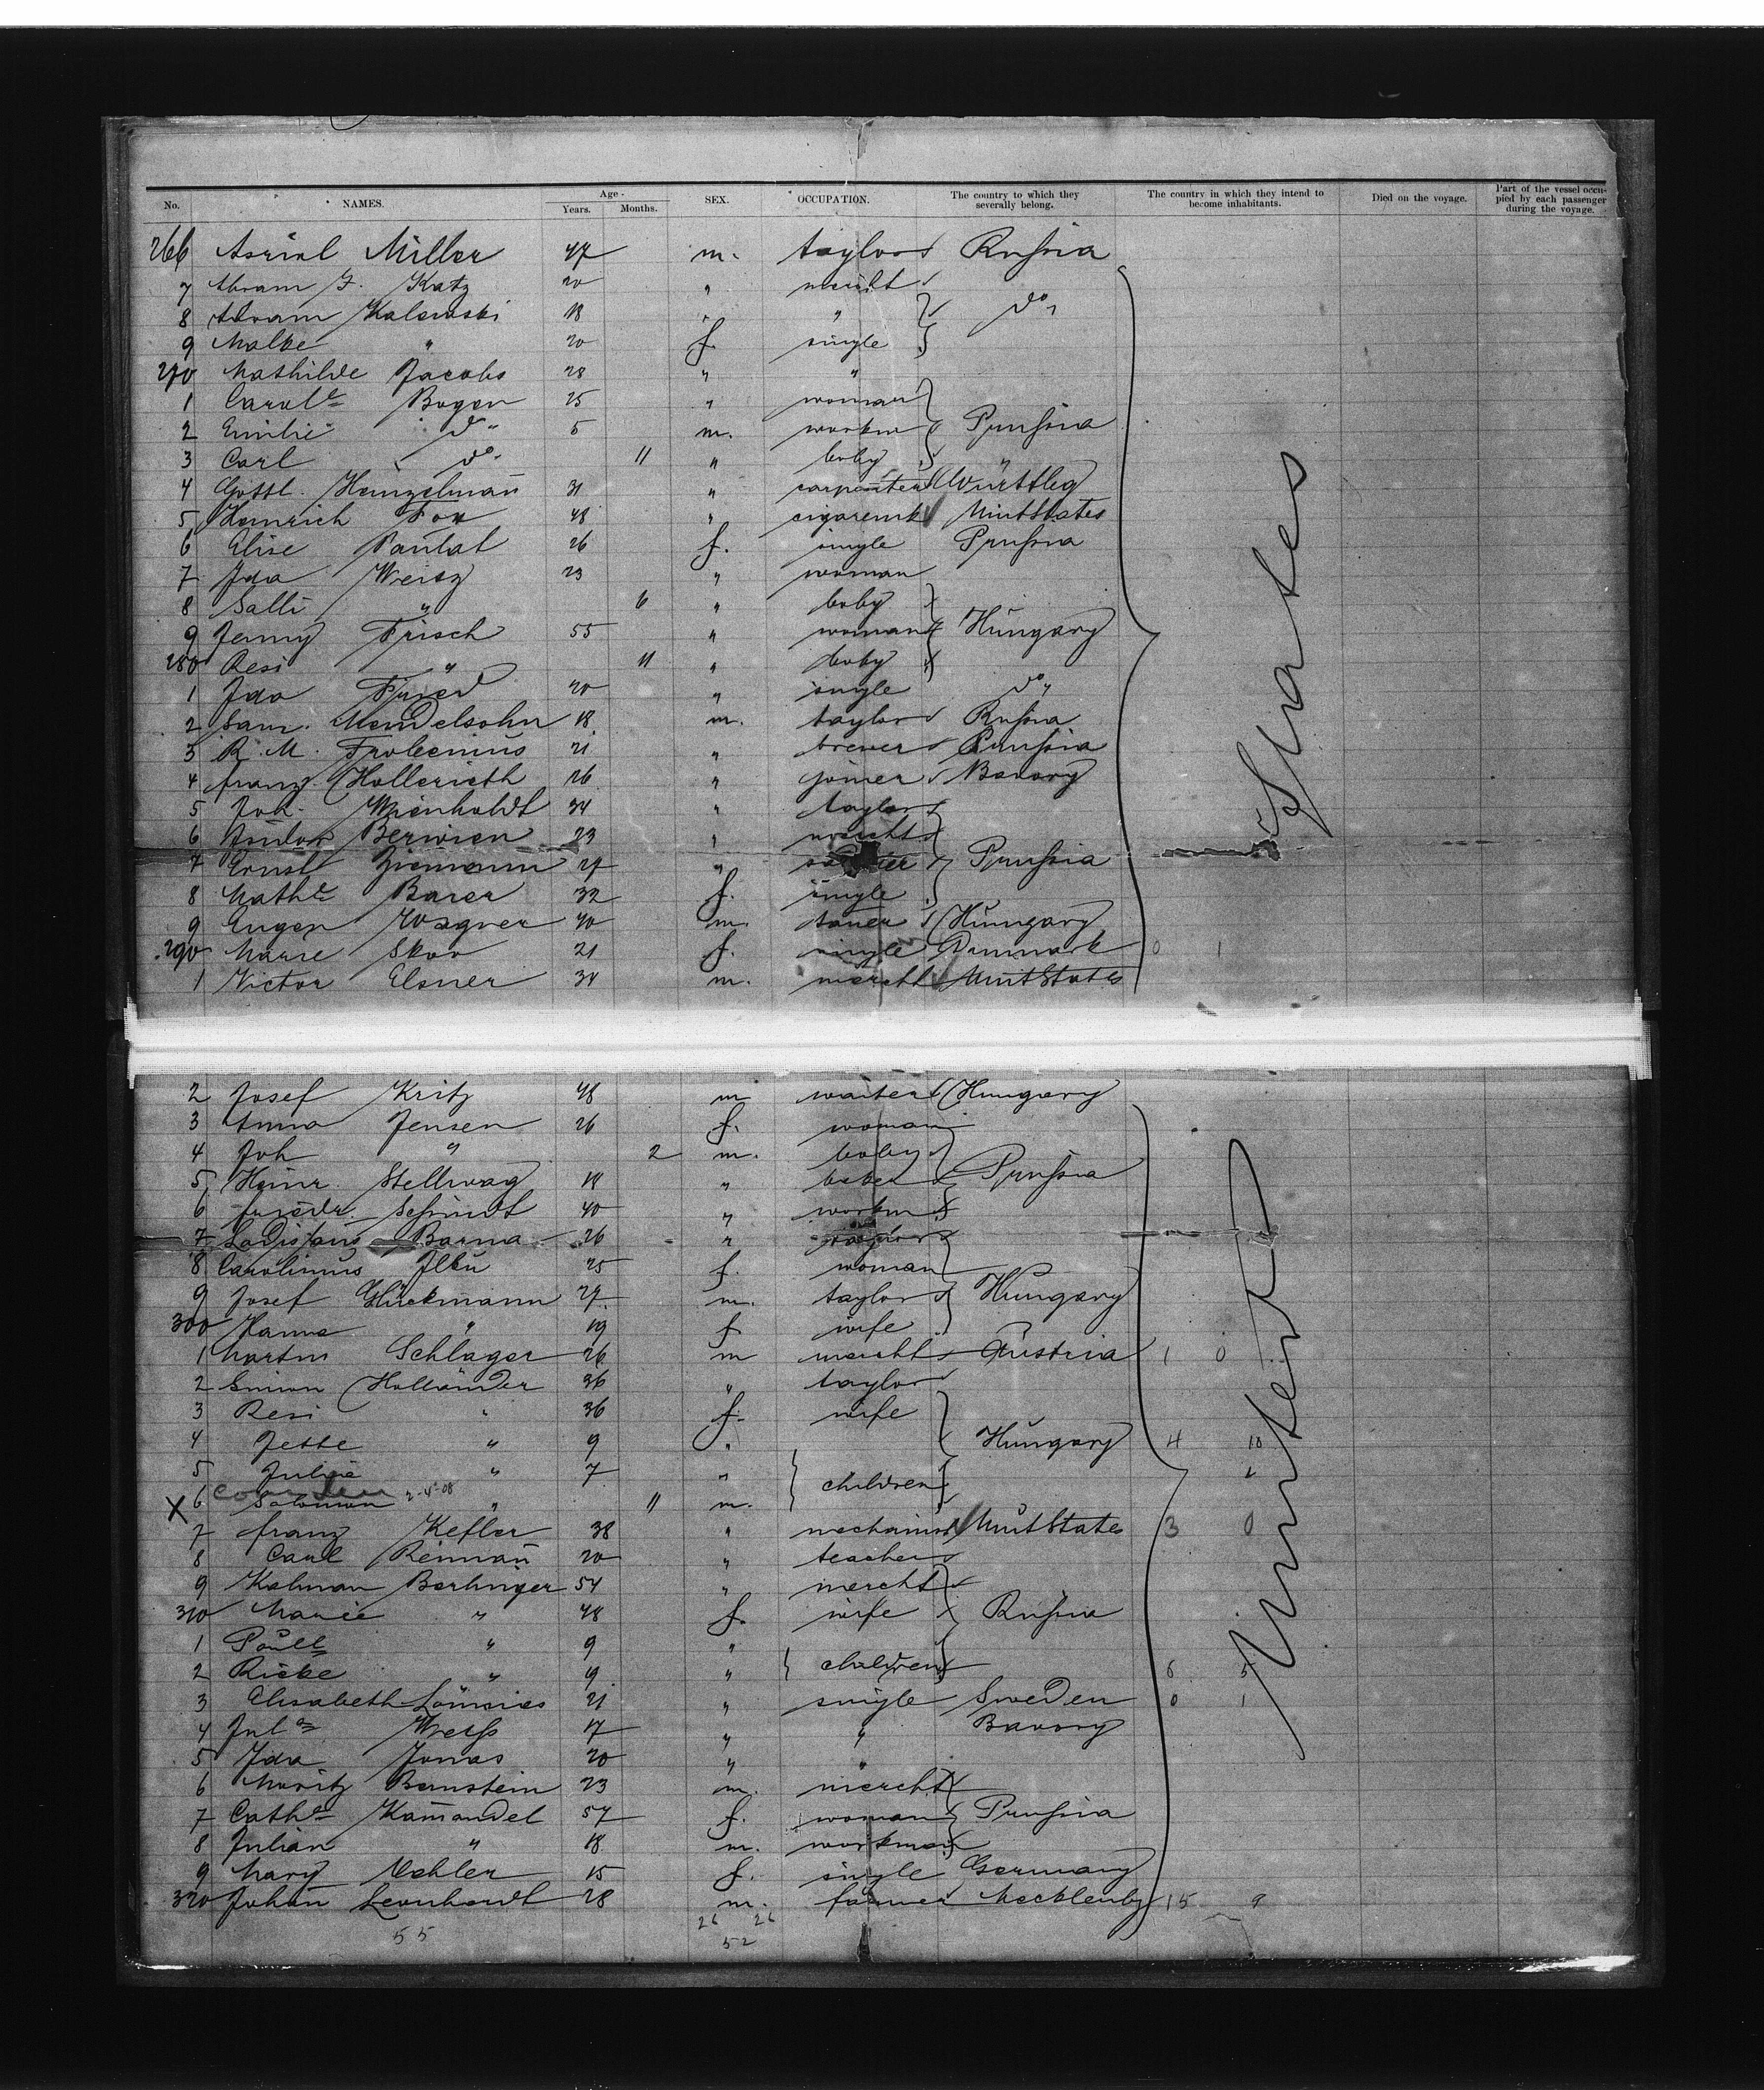 No. NAMES. Age. Years. Months. SEX. OCCUPATION. The country to which they severally belong. The country in which they intend to become inhabitants. Died on the voyage. Part of the vessel occupied by each passenger during the voyage.
266 Miller 47 m. taylor Russia
7 Abram Katz 20 " mercht
8 Abram Kalewski 18 " " do
9 Malke " 20 f. single
270 Mathilde Jacobs 28 " "
1 Carole Bogen 25 " woman
2 Emilie do 5 m. workm Prussia
3 Carl do 11 " baby "
4 Gottl. Heinzelmañ 31 " carpenter Württbg
5 Heinrich Fox 48 " cigaremk UnitStates
6 Elise Pautat 26 f. single Prussia
7 Ida Weisz 23 " woman
8 Salli " 6 " baby
9 Jenny Frisch 55 " woman Hungary
280 Resi " 11 " baby
1 Ida 20 " single do
2 Sam. Mendelsohn 18 m. taylor Russia
3 R. M. Frobenius 21 " brewer Prussia
4 Franz Hollerieth 26 " joiner Bavary
5 Joh. Wienholdt 34 " taylor
6 Berwien 23 " mercht
7 Ernst Ziemann 27 " Prussia
8 Mathe Barer 32 f. single
9 Eugen Wagner 40 m. Hungary
290 Marie Skov 21 f. single Danmark 0 1
1 Victor Elsner 34 m. mercht UnitStates
States
2 Josef Kritz 48 m waiter Hungary
3 Anna Jensen 26 f. woman
4 Joh " 2 m. baby
5 Heinr. Stellwag 18 " baker Prussia
6 Friedr. Schmidt 40 " workm
7 Ladislaus Barna 26 "
8 Carolinus 25 f. woman
9 Josef Glückmann 27 m. taylor Hungary
300 Hanna " 19 f wife
1 Martin Schlager 26 m mercht Austria 1 0
2 Simon Holländer 36 " taylor
3 Resi " 36 f. wife
4 Jette " 9 " Hungary 4 10
5 Julie " 7 " children
X 6 Salomon 2-4-08 " 11 m.
7 Franz Kefler 38 " mechanist UnitStates 3 0
8 Carl Reimañ 20 " teacher
9 Kalman Berlinger 54 " mercht
310 Marie " 48 f. wife Russia
1 " 9 "
2 Rieke " 9 " children 6 5
3 Elisabeth 21 " single Sweden 0 1
4 Weiss 17 " " Bavary
5 Ida Jonas 20 " "
6 Moritz Bernstein 23 m. mercht
7 Cathe Kamandel 57 f. woman Prussia
8 Julian " 18 m. workman
9 Mary 15 f. single Germany
320 Johan Leonhardt 28 m. farmer Mecklenbg 15 9
United
55 26 26
52